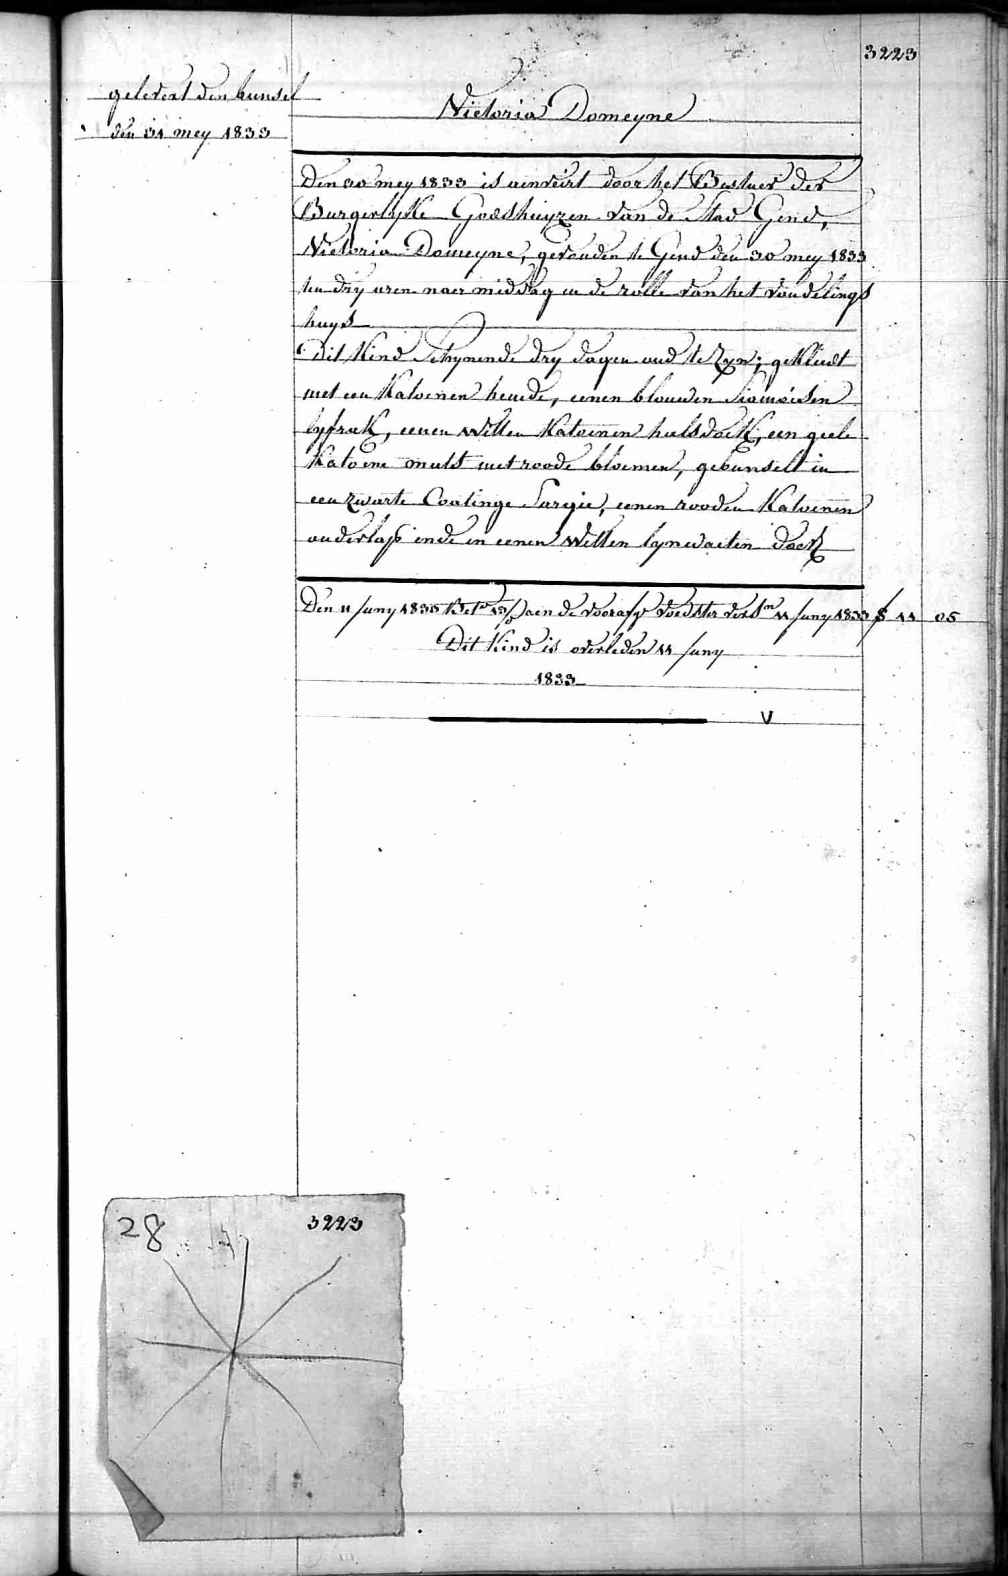 3223
gelevert den bunsel
den 31 mey 1833
Victoria Domeyne
Den 30 mey 1833 is aenveirt door het Bestuer der
Burgerlyke Godshuyzen van de Stad Gend,
Victoria Domeyne, gevonden te Gend den 30 mey 1833
ten dry uren naer middag in de rolle van het vondelings
huys
Dit Kind Schynende dry dagen oud te Zyn; gekleedt
met een Katoenen hemde, eenen blauwen Siamoisen
lyfrok, eenen witten Katoenen halsdoek, een geele
Katoene muts met roode bloemen, gebunselt in
een zwarte Coatinge Sargie, eenen rooden Katoenen
onderlap ende in eenen witten lynwaeten doek
Den 11 juny 1833 aen de voedster 11 juny 1833 11 05
Dit Kind is overleden 11 juny
1833
V
28 3223